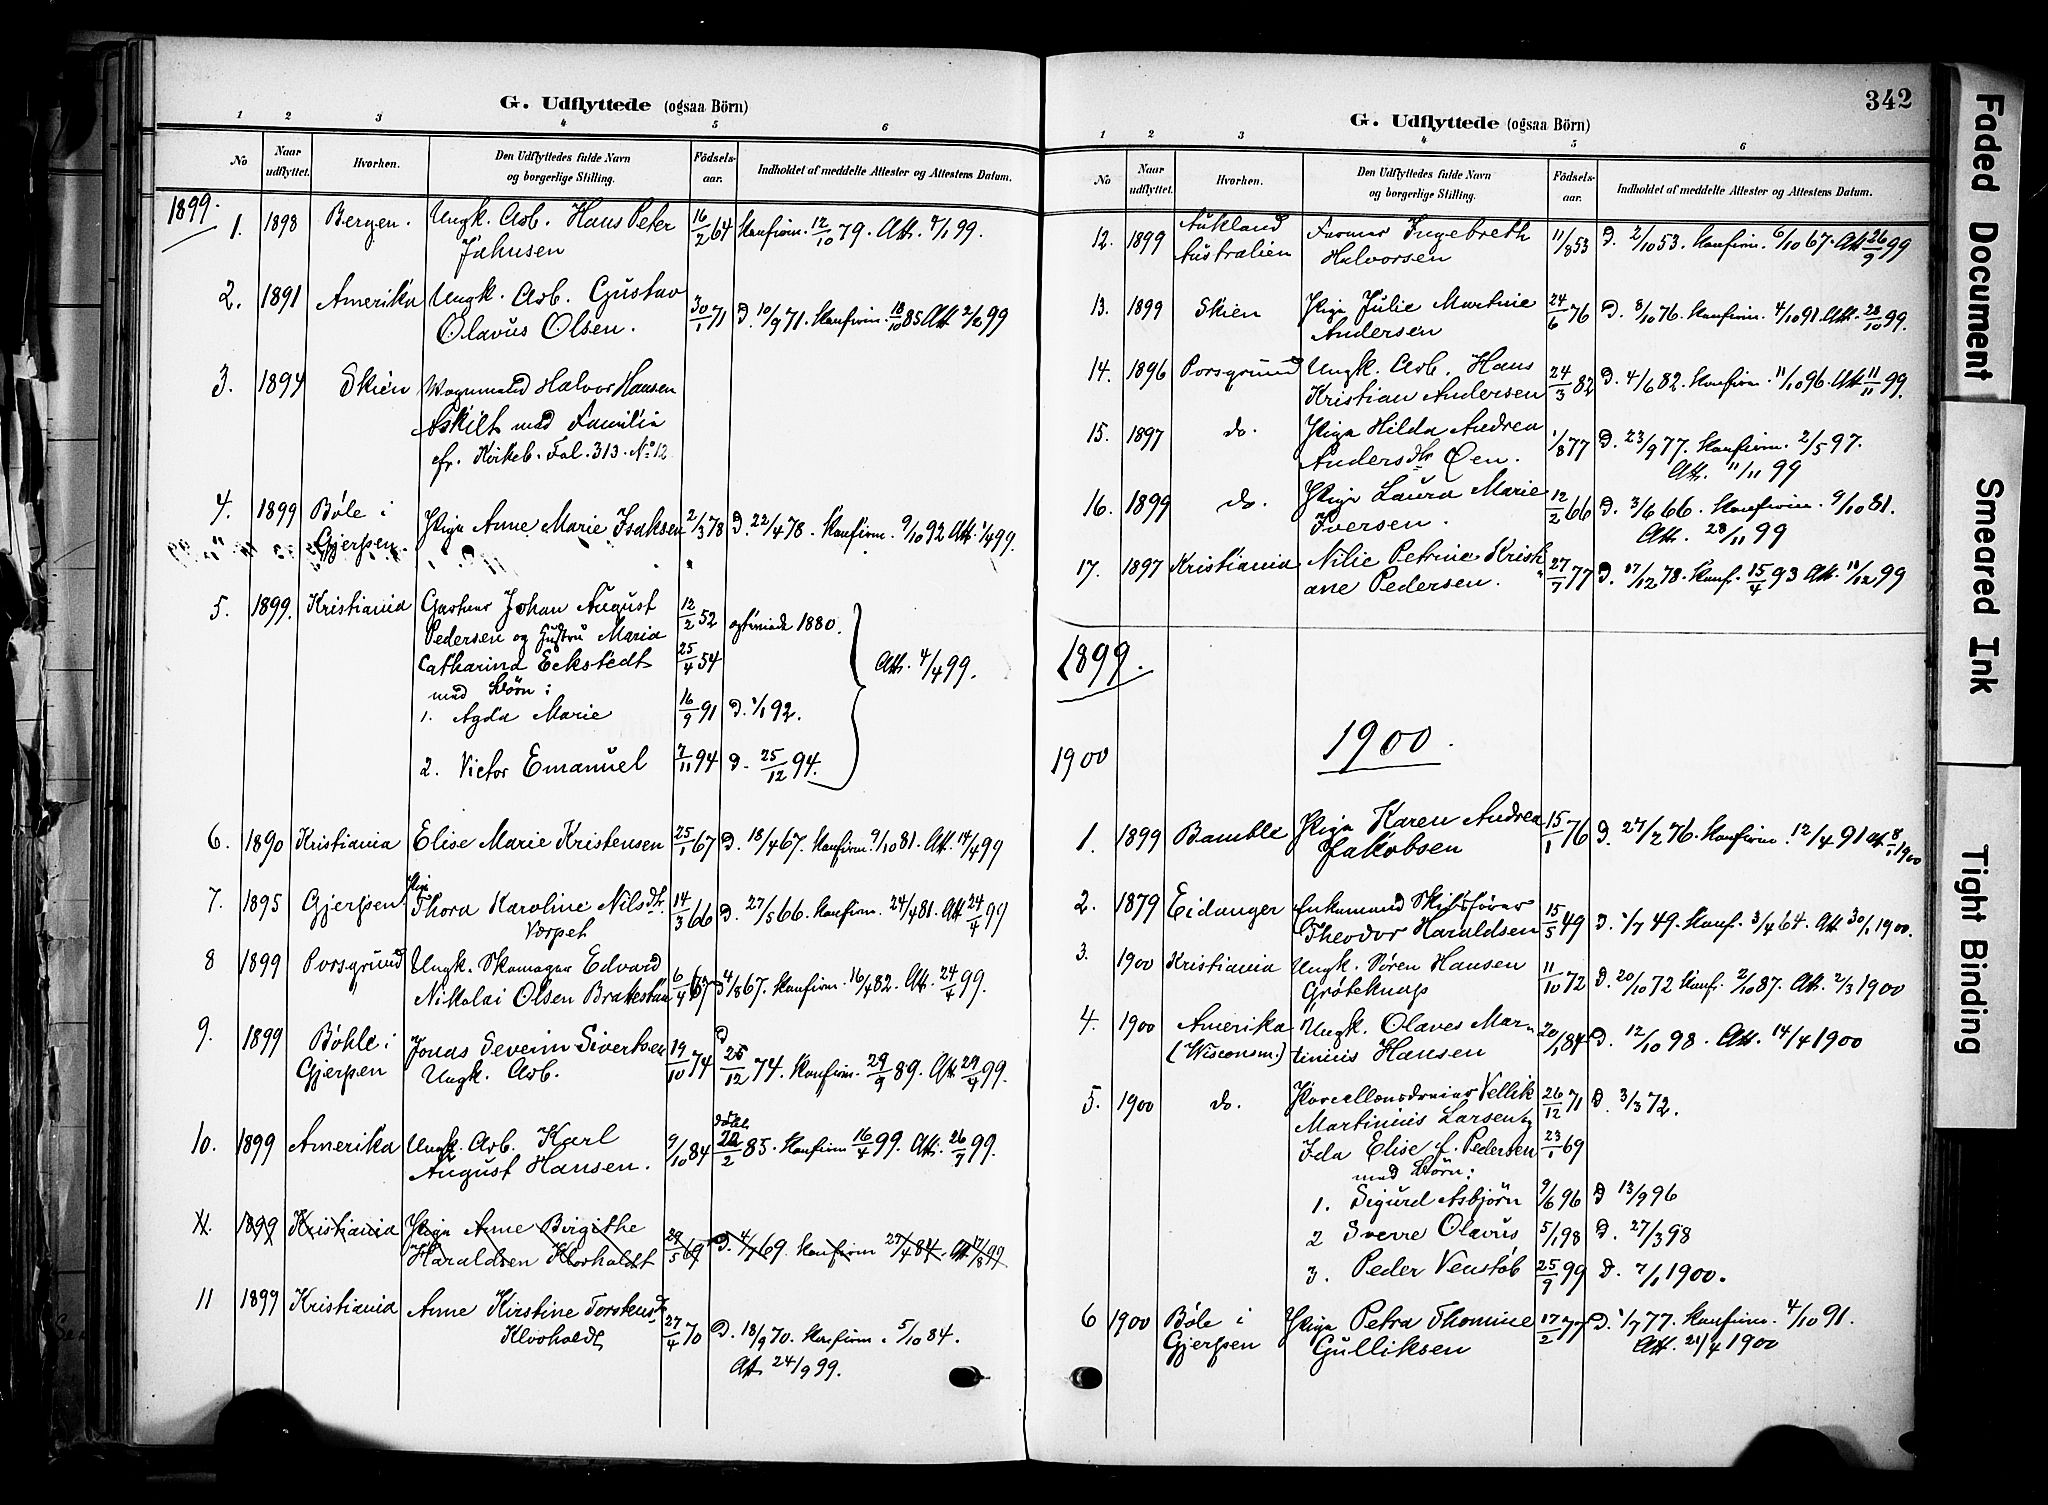 G. Udflyttede (ogsaa Börn)
1 2 3 4 5 6
No Naar udflyttet. Hvorhen. Den Udflyttedes fulde Navn og borgerlige Stilling. Födsels-aar. Indholdet af meddelte Attester og Attestens Datum.
1899.
1. 1898 Bergen. Ungk. Arb. Hans Peter 16/2 64 Konfirm. 12/10 79. Att. 4/1 99.
Jahnsen
2. 1891 Amerika Ungk. Arb. Gustav 30/1 71 D. 10/9 71. Konfirm. 18/10 85 Att 2/2 99
Olavus Olsen.
3. 1894 Skien Vognmand Halvor Hansen
Askilt med Familie
cfr. Kirkeb. Fol. 313. No 12
4. 1899 Bøle i Gjerpen. Pige Anne Marie Isaksen 2/3 78 D. 22/4 78. Konfirm. 9/10 92 Att. 1/4 99.
5. 1899. Kristiania Gartner Johan August 12/2 52 1880.
Pedersen og Hustru Maria
Catharina Eckstedt 25/4 54 Att. 4/4 99.
med Børn:
1. Agda Marie 16/9 91 D. 1/1 92.
2. Victor Emanuel 7/11 94 D. 25/12 94.
6. 1890 Kristiania Elise Marie Kristensen 25/1 67 D. 18/4 67. Konfirm. 9/10 81. Att. 14/4 99
7. 1895 Gjerpen Pige Thora Karoline Nilsdtr. 14/3 66 D. 27/5 66. Konfirm. 24/4 81. Att 24/4 99
Vorpet
8 1899 Porsgrund Ungk. Skomager Edvard 6/4 67 D 4/8 67. Konfirm. 16/4 82. Att. 24/4 99.
Nikolai Olsen
9. 1899 Bøhle i Gjerpen Jonas Severin Sivertsen 19/10 74 D 25/12 74. Konfirm. 29/9 89. Att 29/4 99.
Ungk. Arb.
10. 1899 Amerika Ungk. Arb. Karl 9/10 84 døbt 22/2 85. Konfirm 16/4 99. Att. 26/7 99.
August Hansen.
11. 1899 Kristiania Pige Anne Birgithe 29/5 69 D. 4/7 69. Konfirm 27/4 84. Att 17/8 99
Haraldsen Klovholdt
11 1899 Kristiania Anne Kirstine Torstensdr. 27/4 70 D. 18/9 70. Konfirm. 5/10 84.
Klovholdt Att 24/9 99.
342
G. Udflyttede (ogsaa Börn)
1 2 3 4 5 6
No Naar udflyttet. Hvorhen. Den Udflyttedes fulde Navn og borgerlige Stilling. Födsels-aar. Indholdet af meddelte Attester og Attestens Datum.
12. 1899 Aukland Australien Farmer Ingebreth 11/8 53 D. 2/10 53. Konfirm. 6/10 67. Att 26/9 99
Halvorsen
13. 1899 Skien Pige Julie Martine 24/6 76 D. 8/10 76. Konfirm. 4/10 91. Att. 28/10 99.
Andersen
14. 1896 Porsgrund Ungk. Arb. Hans 24/3 82 D. 4/6 82. Konfirm. 11/10 96. Att 11/11 99.
Kristian Andersen
15. 1897 do. Pige Hilda Andrea 1/8 77 D. 23/9 77. Konfirm. 2/5 97.
Andersdtr Øen. Att. 11/11 99
16. 1899 do. Pige Laura Marie 12/2 66 D. 3/6 66. Konfirm. 9/10 81.
Iversen. Att. 28/11 99
17. 1897 Kristiania Nilie Petrine Kristi- 27/7 77 D. 17/12 78. Konf. 15/4 93 Att. 11/12 99
ane Pedersen.
1899.
1900.
1900
1. 1899 Bamble Pige Karen Andrea 15/1 76 D. 27/2 76. Konfirm. 12/4 91 Att 8/1 1900
Jakobsen
2. 1879 Eidanger Enkemand Skibsfører 15/5 49 D. 1/7 49. Konf. 3/4 64. Att 30/1 1900.
Theodor Haraldsen
3. 1900 Kristiania Ungk. Søren Hansen 11/10 72 D. 20/10 72 Konf. 2/10 87. Att. 2/3 1900
Grøteknaps
4. 1900 Amerika (Wisconsin.) Ungk. Olaves Mar- 20/1 84 D. 12/10 98. Att. 14/4 1900
tinius Hansen
5. 1900 do. Porcellænsdreier Vellik 26/12 71 D. 3/3 72.
Martinius Larsen og
Ida Elise f. Pedersen 23/1 69
med Børn:
1. Sigurd Asbjørn 9/6 96 D 13/9 96
2 Sverre Olavus 5/1 98 D. 27/3 98
3. Peder Venstøb 25/9 99 D. 7/1 1900.
6 1900 Bøle i Gjerpen Pige Petra Thomine 17/2 77 D. 1/7 77. Konfirm. 4/10 91.
Gulliksen Att. 21/4 1900
Faded Document
Smeared Ink
Tight Binding